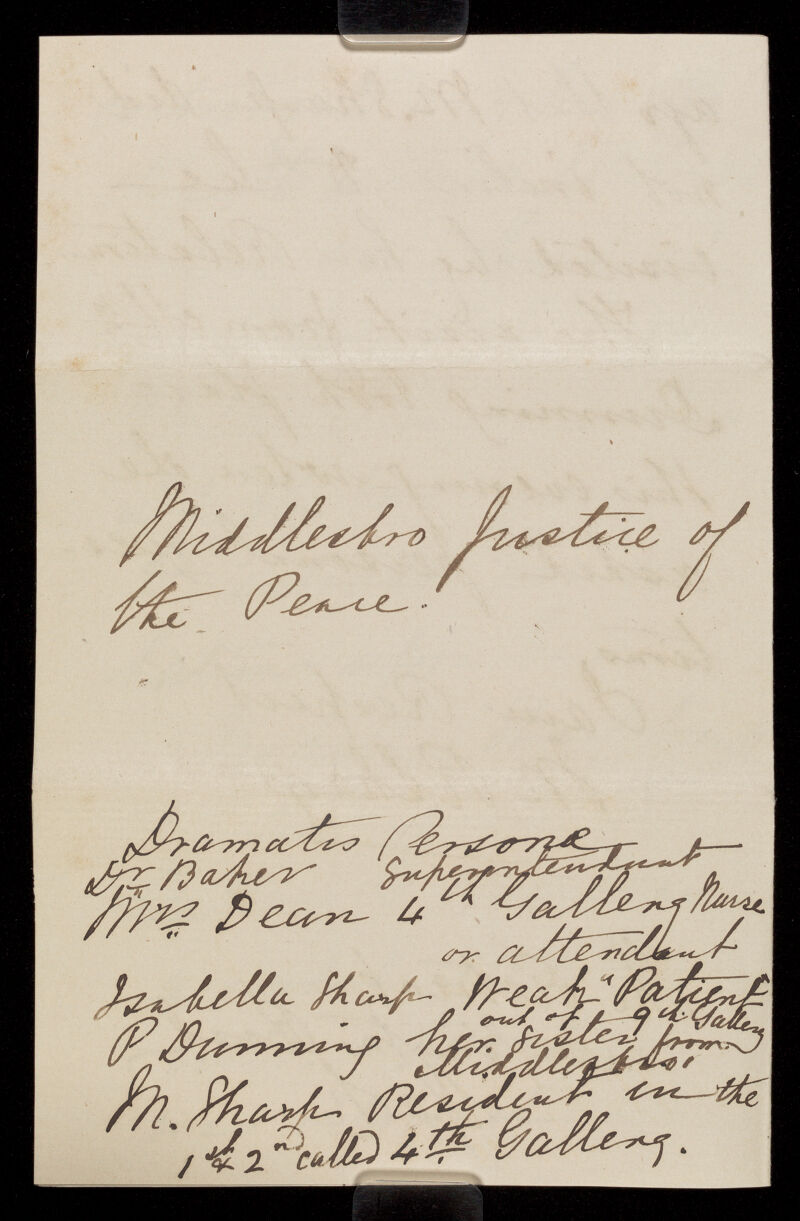 Middlesbro Justice of
the Peace.
Dramatis Persone
Dr Baker Superintendent
Mrs Dean 4th Gallery Nurse
or attendant
Isabella Sharp Weak "Patient"
out of 9th Gallery
P Dunning her sister from
Middlesbro'
M. Sharp Resident in the
1st & 2nd called 4th Gallery.